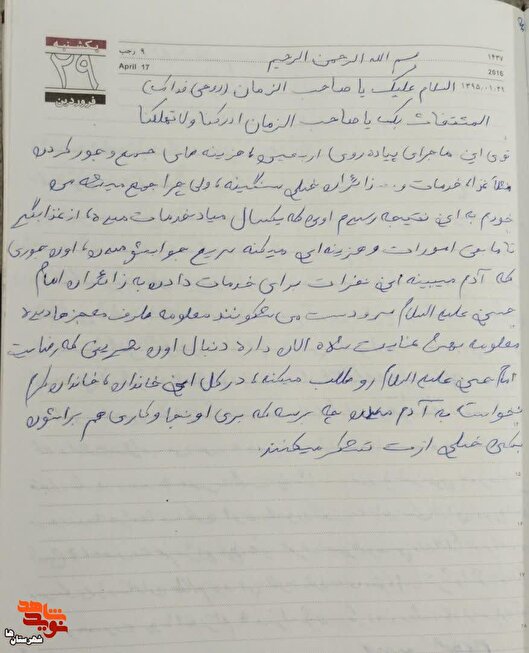 یکشنبه
۲۹
فروردین
۹ رجب
April 17
۱۴۳۷
2016
بسم الله الرحمن الرحیم
۱۳۹۵/۰۱/۲۹ السلام علیک یا صاحب الزمان (روحی فداک)
بک یا صاحب الزمان ادرکنا ولا تهلکنا
توی این ماجرای پیاده روی اربعین، هزینه های جمع و جور کردن
غذا، خدمات و... زائران خیلی سنگینه، ولی چرا جمع میشه من
خودم به این نتیجه رسیدم اونی که یکسال میاد خدمات میده، از غذا بگیر
تا مابقی امورات و هزینه ای میکنه سریع جوابشو میدن، اون جوری
که آدم میبینه این نفرات برای خدمات دادن به زائران امام
حسین علیه السلام سر و دست می شکونند معلومه طرف معجزه دیده
معلومه بهش عنایت شده الان داره دنبال اون شیرینی که رضایت
امام حسین علیه السلام رو طلب میکنه، در کل این خاندان، خاندان کرم
نخواسته به آدم میدن چه برسه که بری اونجا و کاری هم براشون
بکنی خیلی ازت تشکر میکنند.
نوید شاهد
شهرستان‌ها